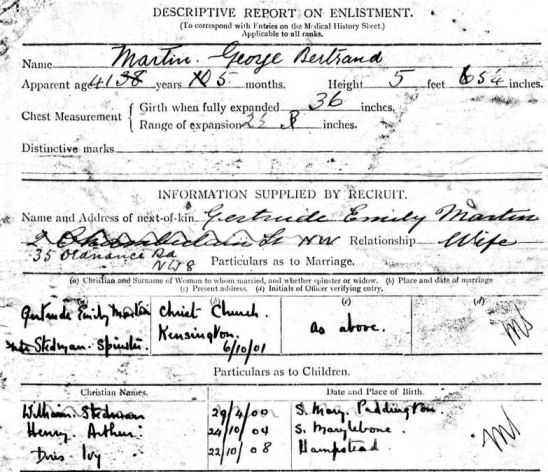 DESCRIPTIVE REPORT ON ENLISTMENT.
(To correspond with Entries on the Medical History Sheet.)
Applicable to all ranks.
Name Martin. George Bertrand
Apparent age 41 years 5 months. Height 5 feet 5¼ inches.
Chest Measurement { Girth when fully expanded 36 inches.
Range of expansion inches.
Distinctive marks
INFORMATION SUPPLIED BY RECRUIT.
Name and Address of next-of-kin Gertrude Emily Martin
2 St NW Relationship Wife
35 Ordnance Rd
NW8
Particulars as to Marriage.
(a) Christian and Surname of Woman to whom married, and whether spinster or widow. (b) Place and date of marriage
(c) Present address. (d) Initials of Officer verifying entry.
(a) (b) (c) (d)
Gertrude Emily Martin Christ Church. As above.
Stedman. Spinster. Kensington.
6/10/01
Particulars as to Children.
Christian Names. Date and Place of Birth.
William Stedman 29/4/00 S. Mary. Paddington.
Henry Arthur 24/10/04 S. Marylebone.
Doris Ivy 22/10/08 Hampstead